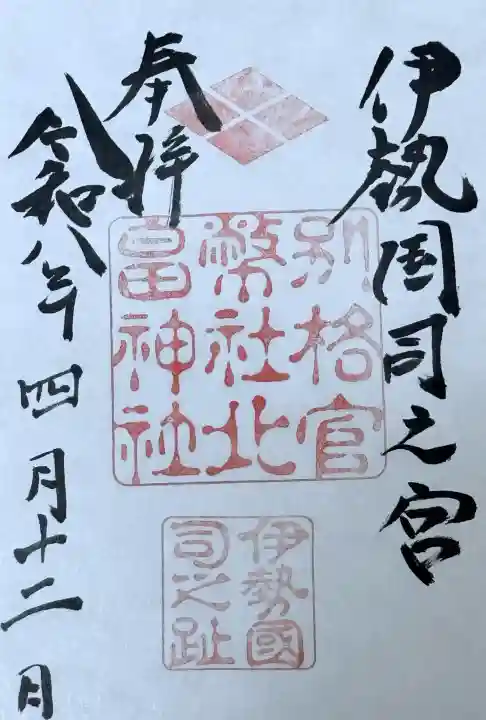 伊勢国司之宮
奉拝
別格官
幣社北
畠神社
伊勢國
司之趾
令和八年四月十二日